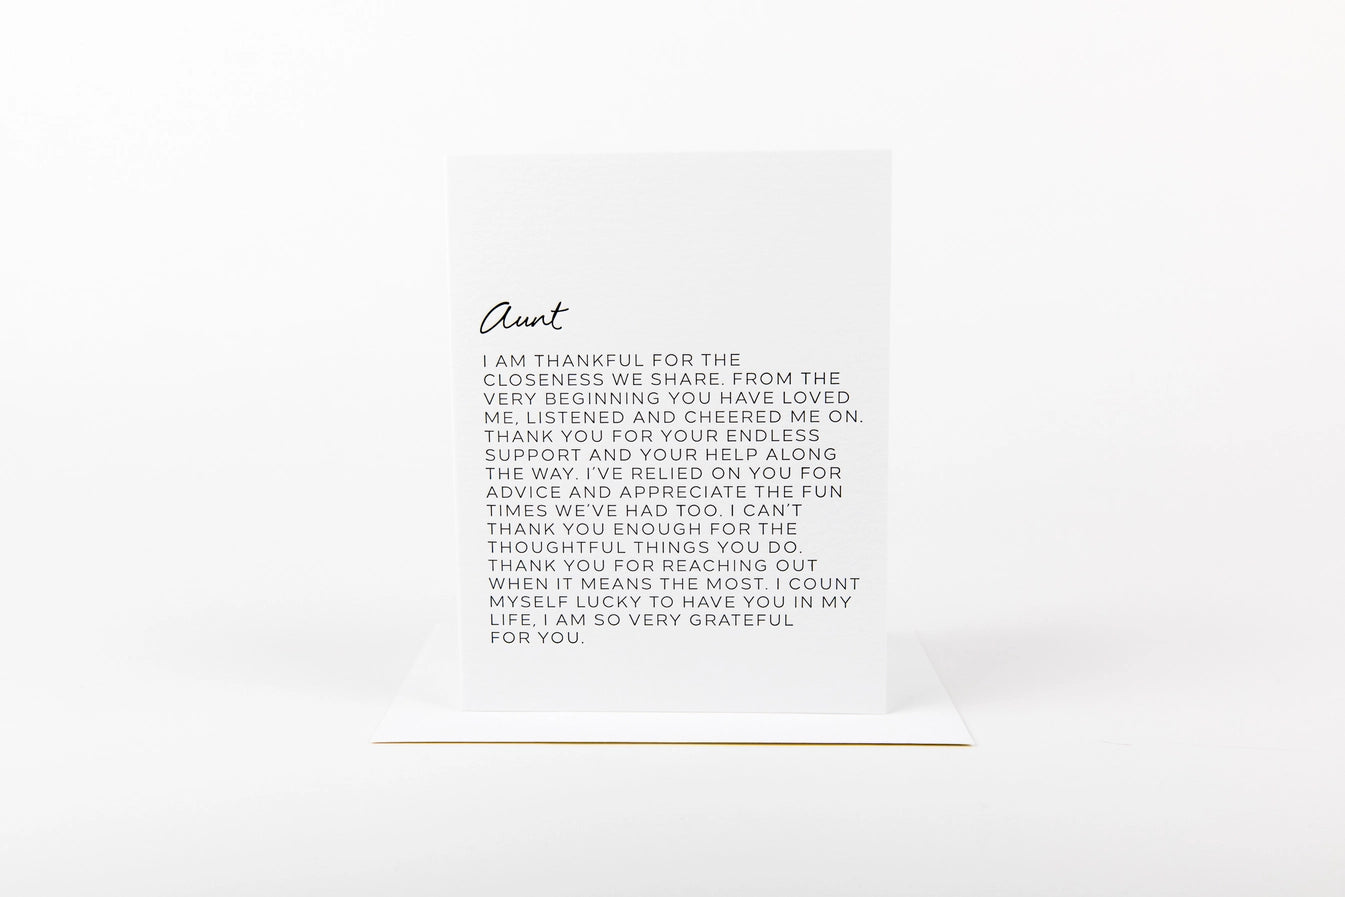 Aunt
I AM THANKFUL FOR THE
CLOSENESS WE SHARE. FROM THE
VERY BEGINNING YOU HAVE LOVED
ME, LISTENED AND CHEERED ME ON.
THANK YOU FOR YOUR ENDLESS
SUPPORT AND YOUR HELP ALONG
THE WAY. I'VE RELIED ON YOU FOR
ADVICE AND APPRECIATE THE FUN
TIMES WE'VE HAD TOO. I CAN'T
THANK YOU ENOUGH FOR THE
THOUGHTFUL THINGS YOU DO.
THANK YOU FOR REACHING OUT
WHEN IT MEANS THE MOST. I COUNT
MYSELF LUCKY TO HAVE YOU IN MY
LIFE, I AM SO VERY GRATEFUL
FOR YOU.